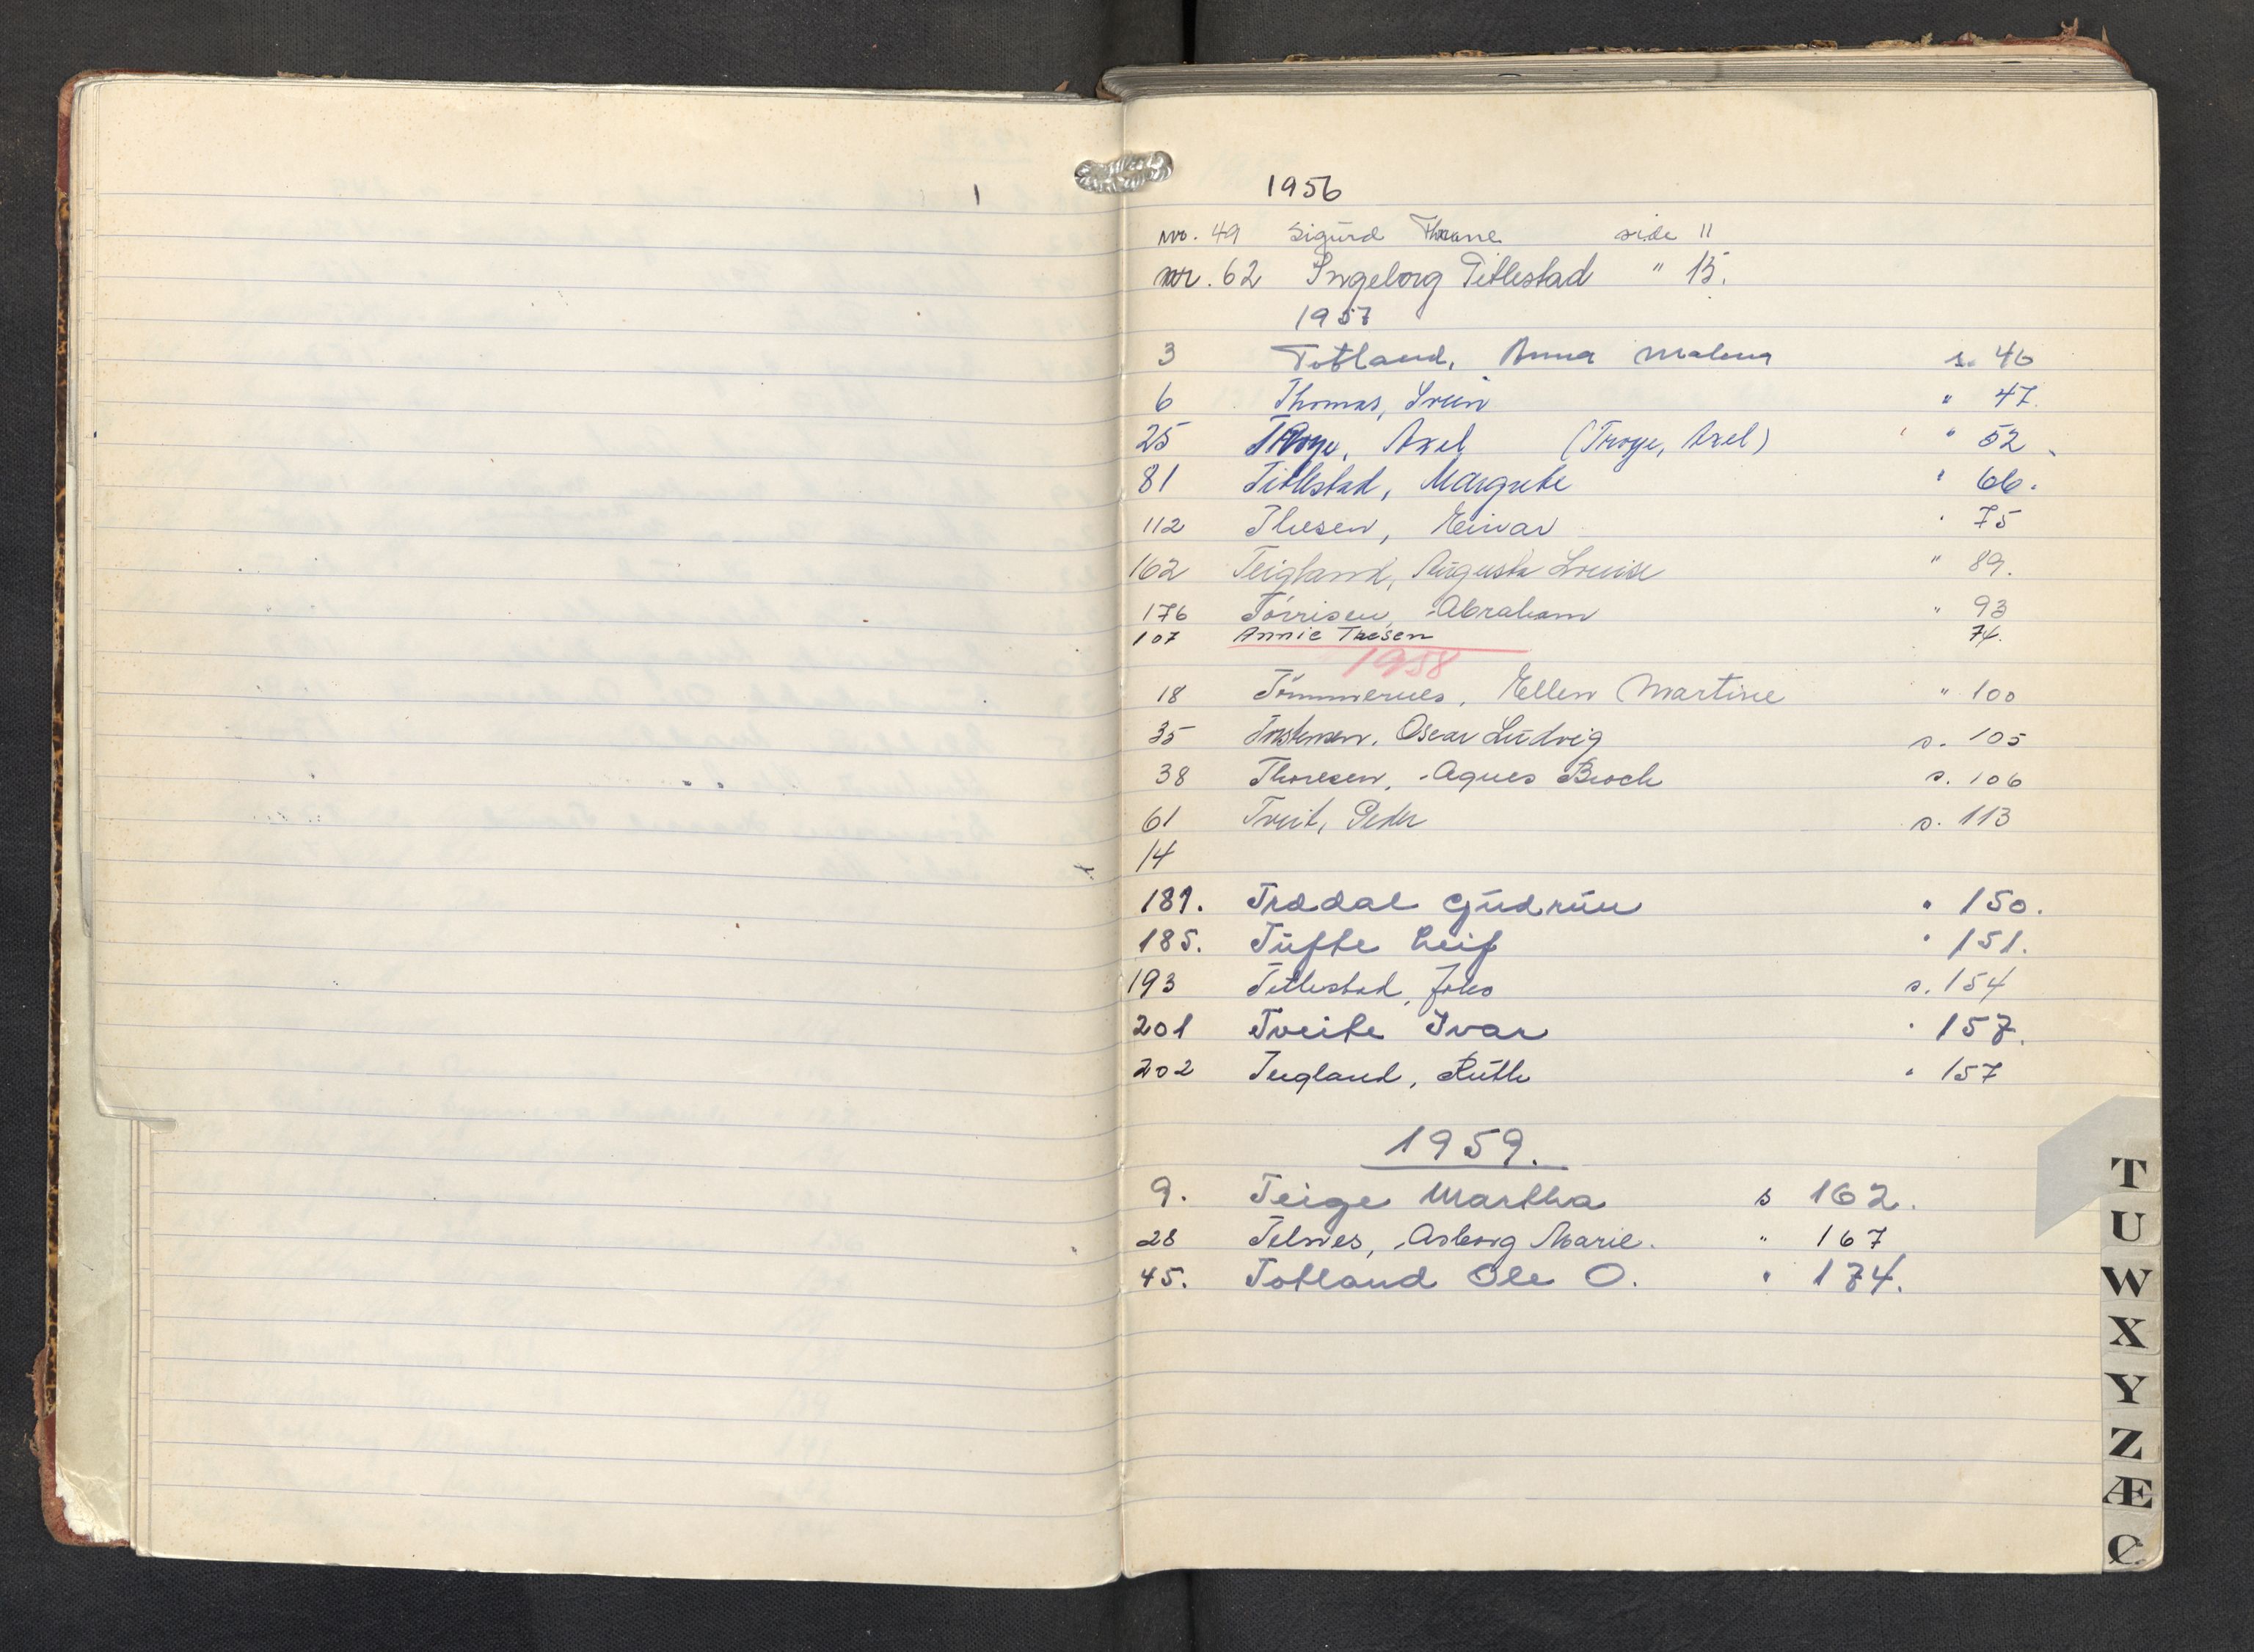 1956
nr. 49 Sigurd Thorne side 11
nr. 62 Ingeborg Titlestad " 15.
1957
3 Totland, Anna Malena s. 46
6 Thomas, Svein " 47.
25 Troye, Axel (Troye, Axel) " 52
81 Titlestad, Margrete " 66.
112 Thesen, Einar " 75
162 Teigland, Augusta Lovise " 89.
176 Tørrisen, Abraham " 93
107 Annie Thesen 74.
1958
18 Tömmernes, Ellen Martine " 100
35 Oscar Ludvig s. 105
38 Thoresen, Agnes Broch s. 106
61 Tveit, Peder s. 113
14
181. Trædal Gudrun " 150.
185. Tufte Leif " 151.
193 Titlestad, s. 154
201 Tveite Ivar " 157.
202 Teigland, Ruth " 157
1959.
9. Teige Martha s 162.
28 Telnes, Asborg Marie. " 167
45. Totland Ole O. " 174.
T
U
W
X
Y
Z
Æ
Ø